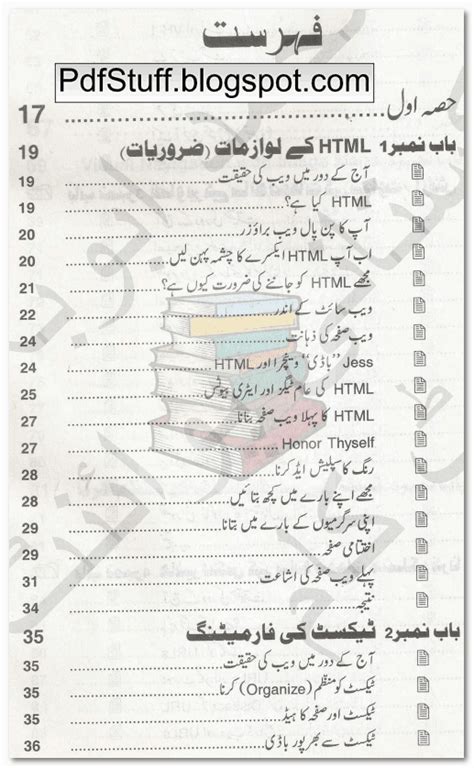 فہرست
PdfStuff.blogspot.com
حصہ اول 17
باب نمبر 1 HTML کے لوازمات (ضروریات) 19
آج کے دور میں ویب کی حقیقت 19
HTML کیا ہے؟ 19
آپ کا پن پال ویب براؤزر 20
اب آپ HTML ایکسرے کا چشمہ پہن لیں 20
مجھے HTML کو جاننے کی ضرورت کیوں ہے؟ 21
ویب سائٹ کے اندر 22
ویب صفحہ کی ذہانت 24
Jess ’’باڈی‘‘ وینچرا اور HTML 24
HTML کی عام ٹیگز اور ایٹری بیوٹس 25
HTML کا پہلا ویب صفحہ بنانا 27
Honor Thyself 27
رنگ کا سپلیش ایڈ کرنا 28
مجھے اپنے بارے میں کچھ بتائیں 28
اپنی سرگرمیوں کے بارے میں بتانا 29
اختتامی صفحہ 29
پہلے ویب صفحہ کی اشاعت 31
نتیجہ 34
باب نمبر 2 ٹیکسٹ کی فارمیٹنگ 35
آج کے دور میں ویب کی حقیقت 35
ٹیکسٹ کو منظم (Organize) کرنا 35
ٹیکسٹ اور صفحہ کا ہیڈ 35
ٹیکسٹ سے بھرپور باڈی 36